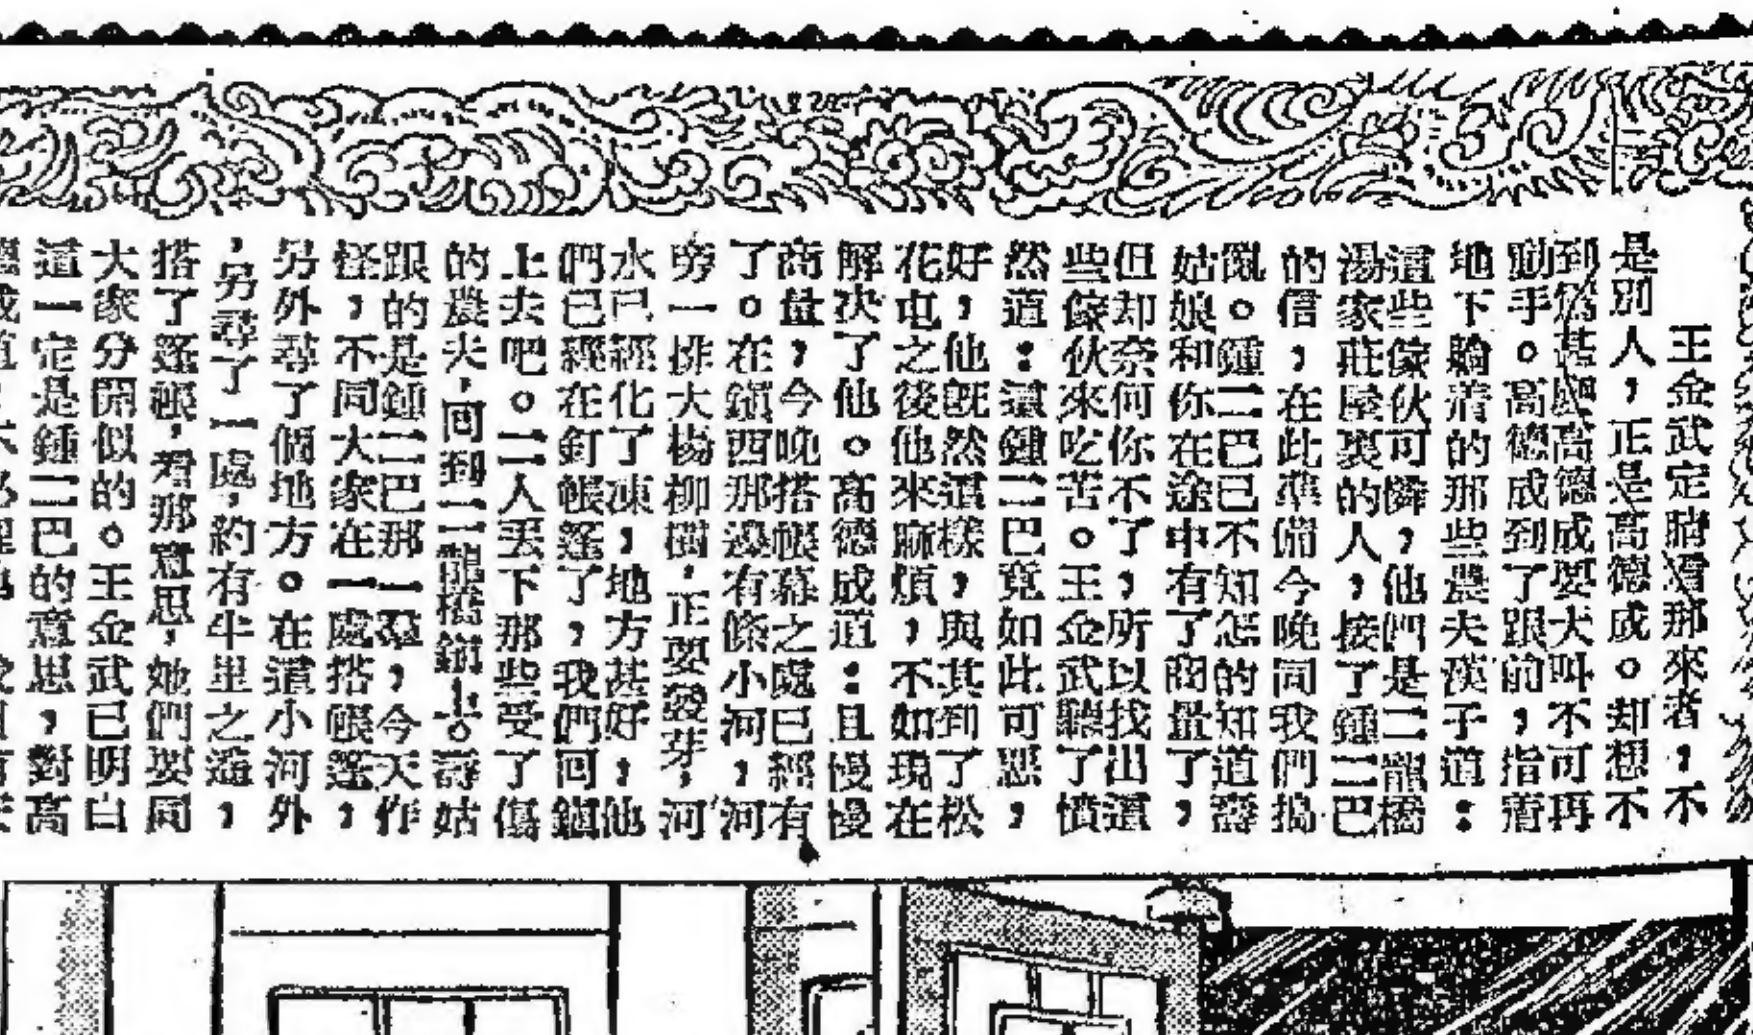 王金武定睛看那來者，不
是別人，正是高德成。却想不
到為甚麼高德成要大叫不可再
動手。高德成到了跟前，指着
地下躺着的那些農夫漢子道：
這些傢伙可憐，他們是二龍橋
湯家莊屋裏的人，接了鍾二巴
的信，在此準備今晚同我們搗
亂。鍾二巴已不知怎的知道壽
姑娘和你在途中有了商量了，
但却奈何你不了，所以找出這
些傢伙來吃苦。王金武聽了憤
然道：這鍾二巴竟如此可惡，
好，他既然這樣，與其到了松
花屯之後他來麻煩，不如現在
解決了他。高德成道：且慢慢
商量，今晚搭帳幕之處已經有
了。在鎮西那邊有條小河，河
旁一排大楊柳樹，正要發芽，河
水已經化了凍，地方甚好，他
們已經在釘帳篷了，我們回鎮
上去吧。二人丟下那些受了傷
的農夫，回到二龍橋鎮上。壽姑
跟的是鍾二巴那一羣，今天作
怪，不同大家在一處搭帳篷，
另外尋了個地方。在這小河外
，另尋了一處，約有半里之遙，
搭了篷帳，看那意思，她們要同
大家分開似的。王金武已明白
這一定是鍾二巴的意思，對高